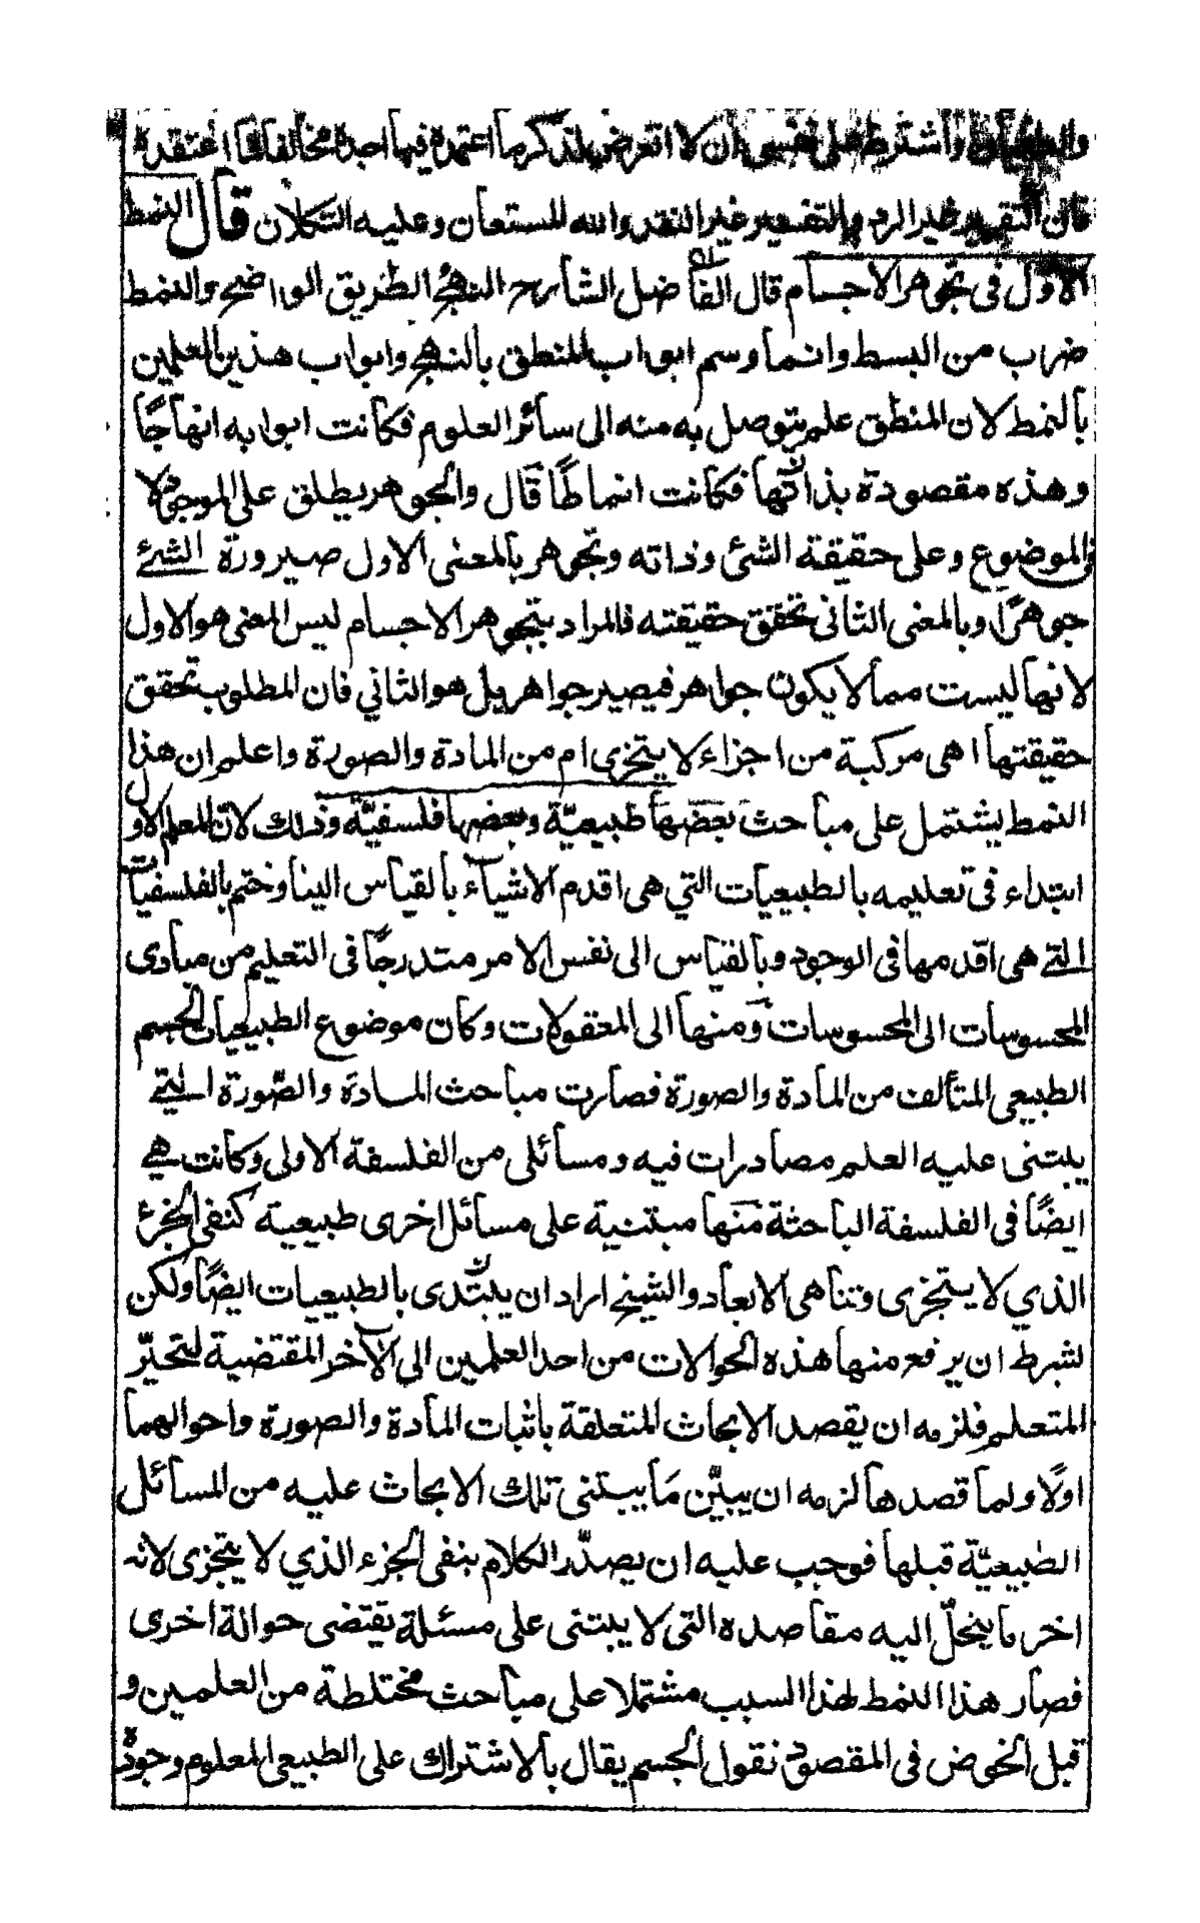 واشترط على نفسي ان لا اتعرض لذكر ما اعتمده فيما اجده مخالفا لما اعتقده
فان التقرير غير الرد والتفسير غير النقد والله المستعان وعليه التكلان قال النمط
الاول في تجوهر الاجسام قال الفاضل الشارح النهج الطريق الواضح والنمط
ضرب من البسط وانما وسم ابواب المنطق بالنهج وابواب هذين العلمين
بالنمط لان المنطق علم يتوصل به منه الى سائر العلوم فكانت ابوابه انهاجًا
وهذه مقصودة بذاتها فكانت انماطًا قال والجوهر يطلق على الموجود لا
في الموضوع وعلى حقيقة الشئ وذاته وتجوهر بالمعنى الاول صيرورة الشئ
جوهرًا وبالمعنى الثاني تحقق حقيقته فالمراد بتجوهر الاجسام ليس المعنى هو الاول
لانها ليست مما لا يكون جواهر فيصير جواهر بل هو الثاني فان المطلوب تحقق
حقيقتها اهى مركبة من اجزاء لا يتجزى ام من المادة والصورة واعلم ان هذا
النمط يشتمل على مباحث بعضها طبيعيّة وبعضها فلسفيّة وذلك لان المعلم الاول
ابتداء في تعليمه بالطبيعيات التي هى اقدم الاشياء بالقياس الينا وختم بالفلسفيات
التے هى اقدمها في الوجود وبالقياس الى نفس الامر متدرجًا في التعليم من مبادى
المحسوسات الى المحسوسات ومنها الى المعقولات وكان موضوع الطبيعيات الجسم
الطبيعي المتألف من المادة والصورة فصارت مباحث المادة والصّورة التے
يبتنى عليه العلم مصادرات فيه ومسائلى من الفلسفة الاولى وكانت هے
ايضًا في الفلسفة الباحثة منها مبتنية على مسائل اخرى طبيعية كنفى الجزء
الذي لا يتجزى وتناهى الابعاد والشيخ اراد ان يبتدى بالطبيعيات ايضًا ولكن
لشرط ان يرفع منها هذه الحوالات من احد العلمين الى الآخر المقتضية لتحيّر
المتعلم فلزمه ان يقصد الابحاث المتعلقة باثبات المادة والصورة واحوالهما
اولًا ولما قصدها لزمه ان يبيّن ما يبتنى تلك الابحاث عليه من المسائل
الطبيعيّة قبلها فوجب عليه ان يصدّر الكلام بنفى الجزء الذي لا يتجزى لانه
اخر ما ينحلّ اليه مقاصده التى لا يبتنى على مسئلة يقتضى حوالة اخرى
فصار هذا النمط لهذا السبب مشتملا على مباحث مختلطة من العلمين و
قبل الخوض في المقصود نقول الجسم يقال بالاشتراك على الطبيعى المعلوم وجوده